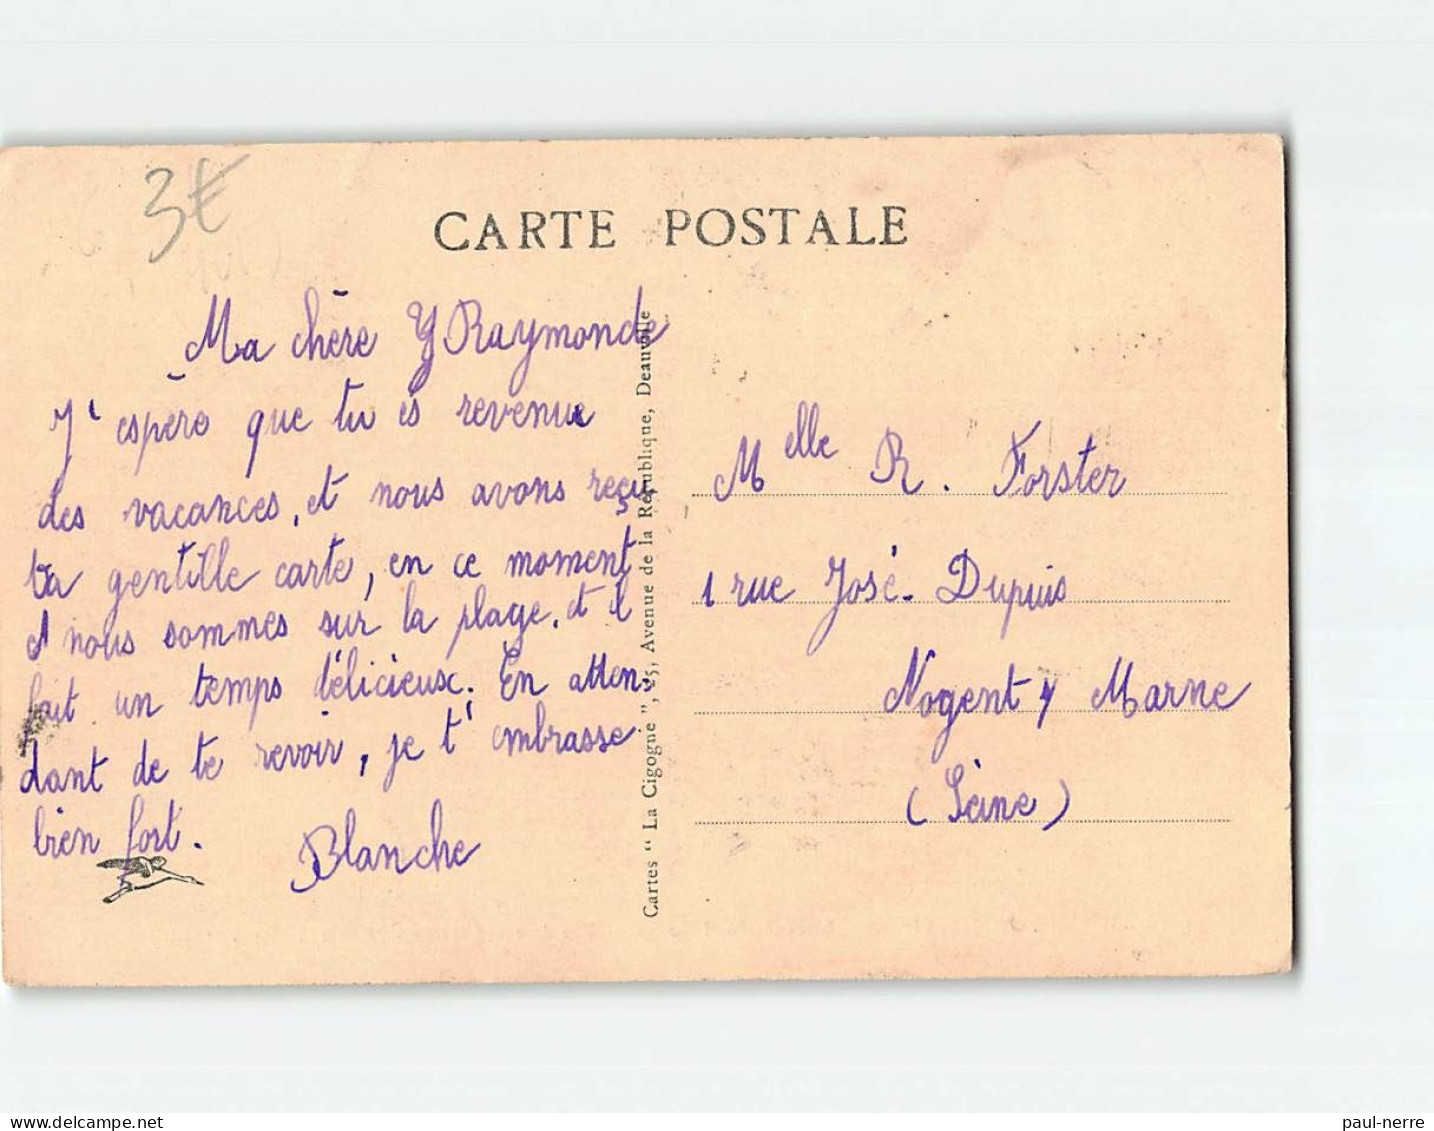 3€
CARTE POSTALE
Ma chère Raymonde
J'espère que tu es revenue
des vacances, et nous avons reçu
ta gentille carte, en ce moment
nous sommes sur la plage, et il
fait un temps délicieux. En atten-
dant de te revoir, je t'embrasse
bien fort.
Blanche
Cartes “ La Cigogne ”, 25, Avenue de la République, Deauville
Melle R. Forster
1 rue José-Dupuis
Nogent s/ Marne
(Seine)
paul-nerre